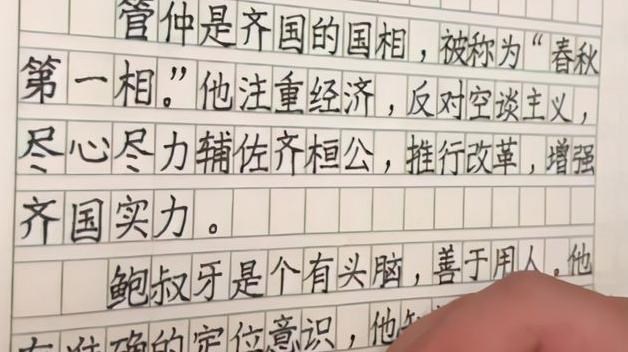 管仲是齐国的国相，被称为“春秋
第一相。”他注重经济，反对空谈主义，
尽心尽力辅佐齐桓公，推行改革，增强
齐国实力。
鲍叔牙是个有头脑，善于用人。他
有准确的定位意识，他知